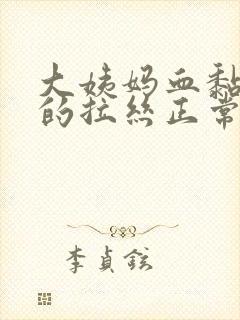 大姨妈血黏
的拉丝正常
李贞铉